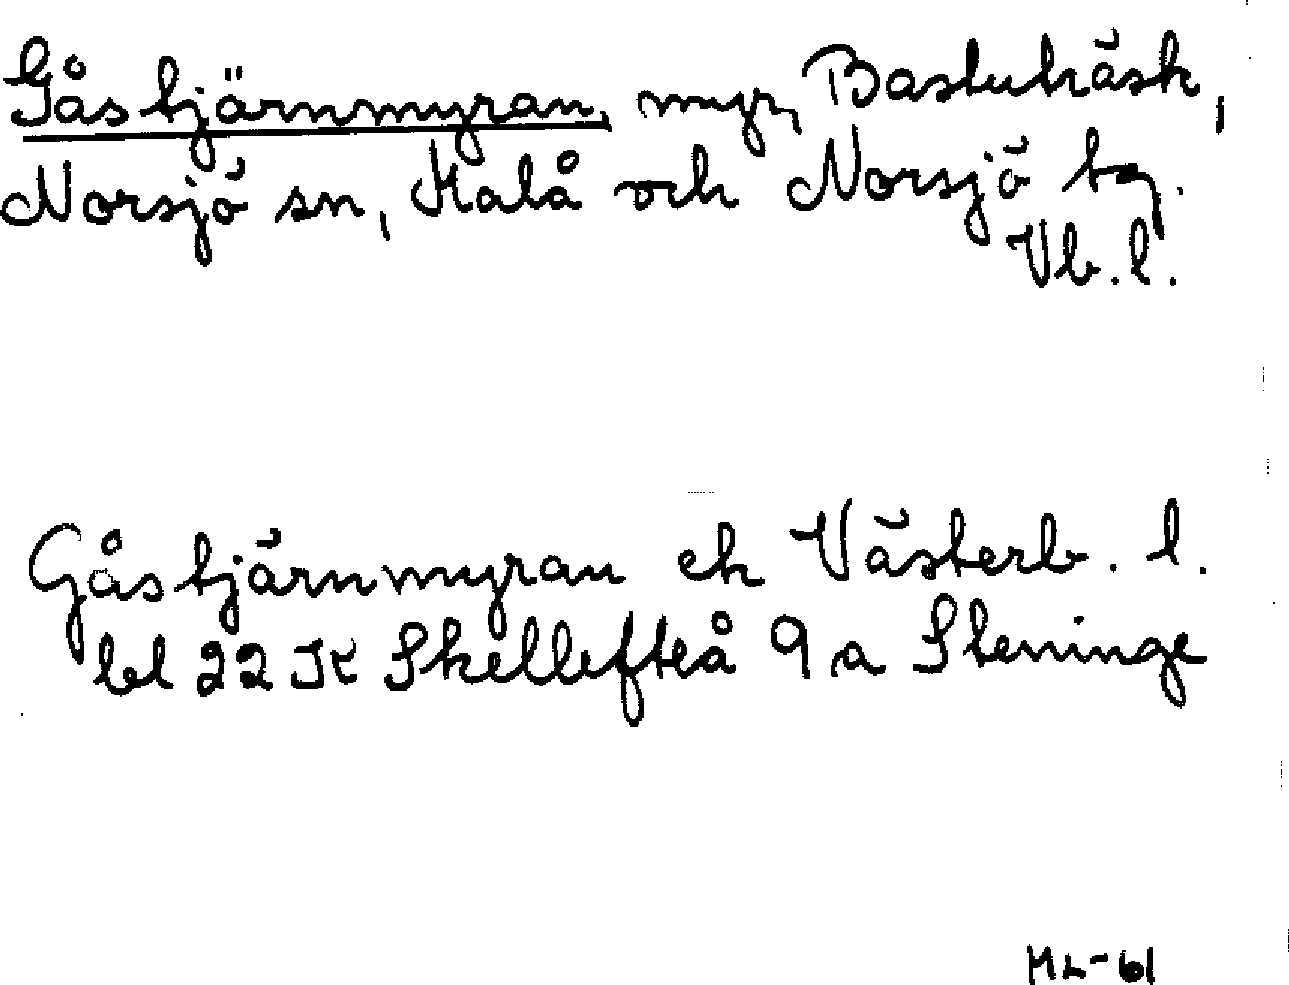 Gåstjärnmyran, myr, Bastuträsk,
Norsjö sn, Malå och Norsjö tg.
Vb. l.
Gåstjärnmyran ek Västerb. l.
bl 22 K Skellefteå 9 a Steninge
ML-61